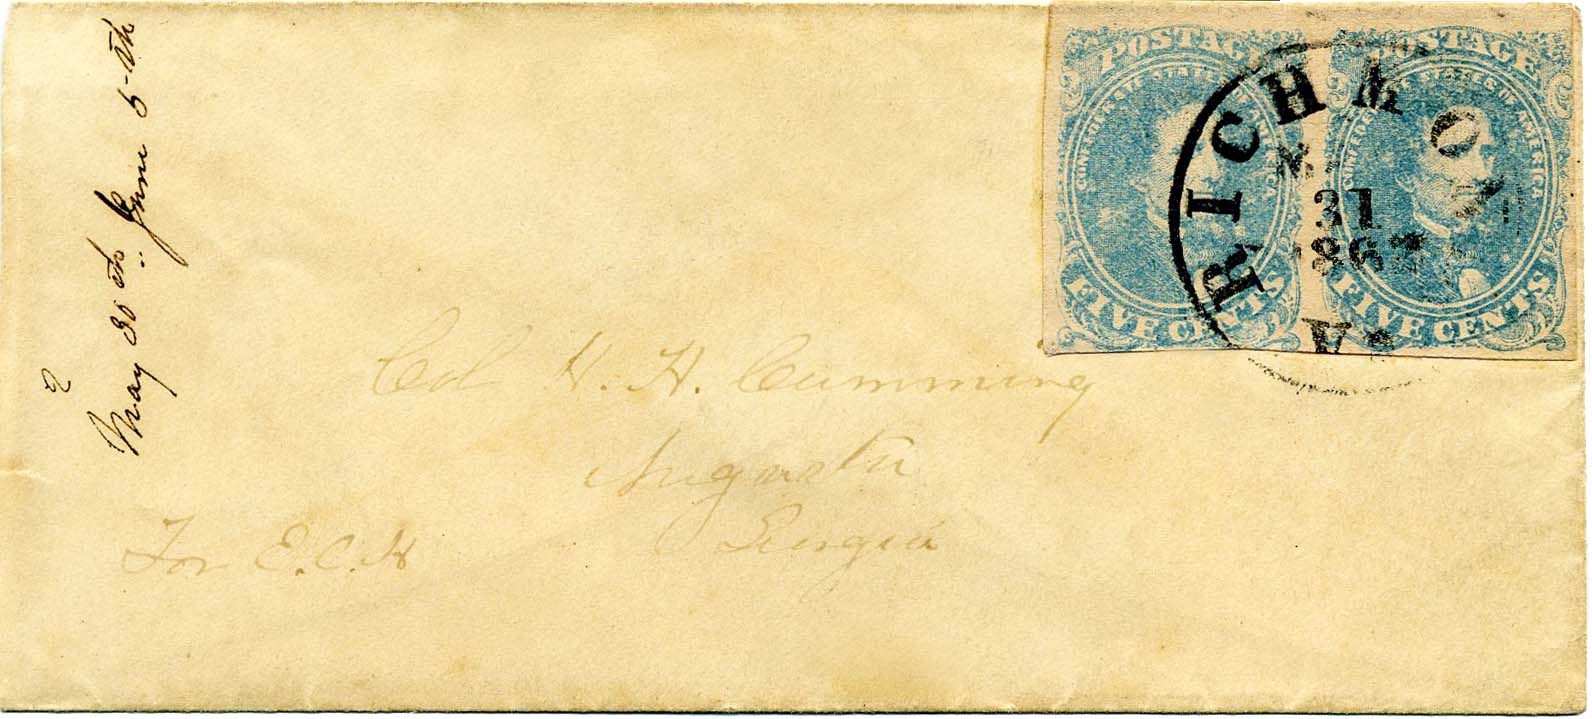 May 30th June 5th
2
POSTAGE
CONFEDERATE STATES OF AMERICA
FIVE CENTS
POSTAGE
CONFEDERATE STATES OF AMERICA
FIVE CENTS
RICHMOND
31
Va.
Col H. H. Cumming
Augusta
Georgia
For E.C.H